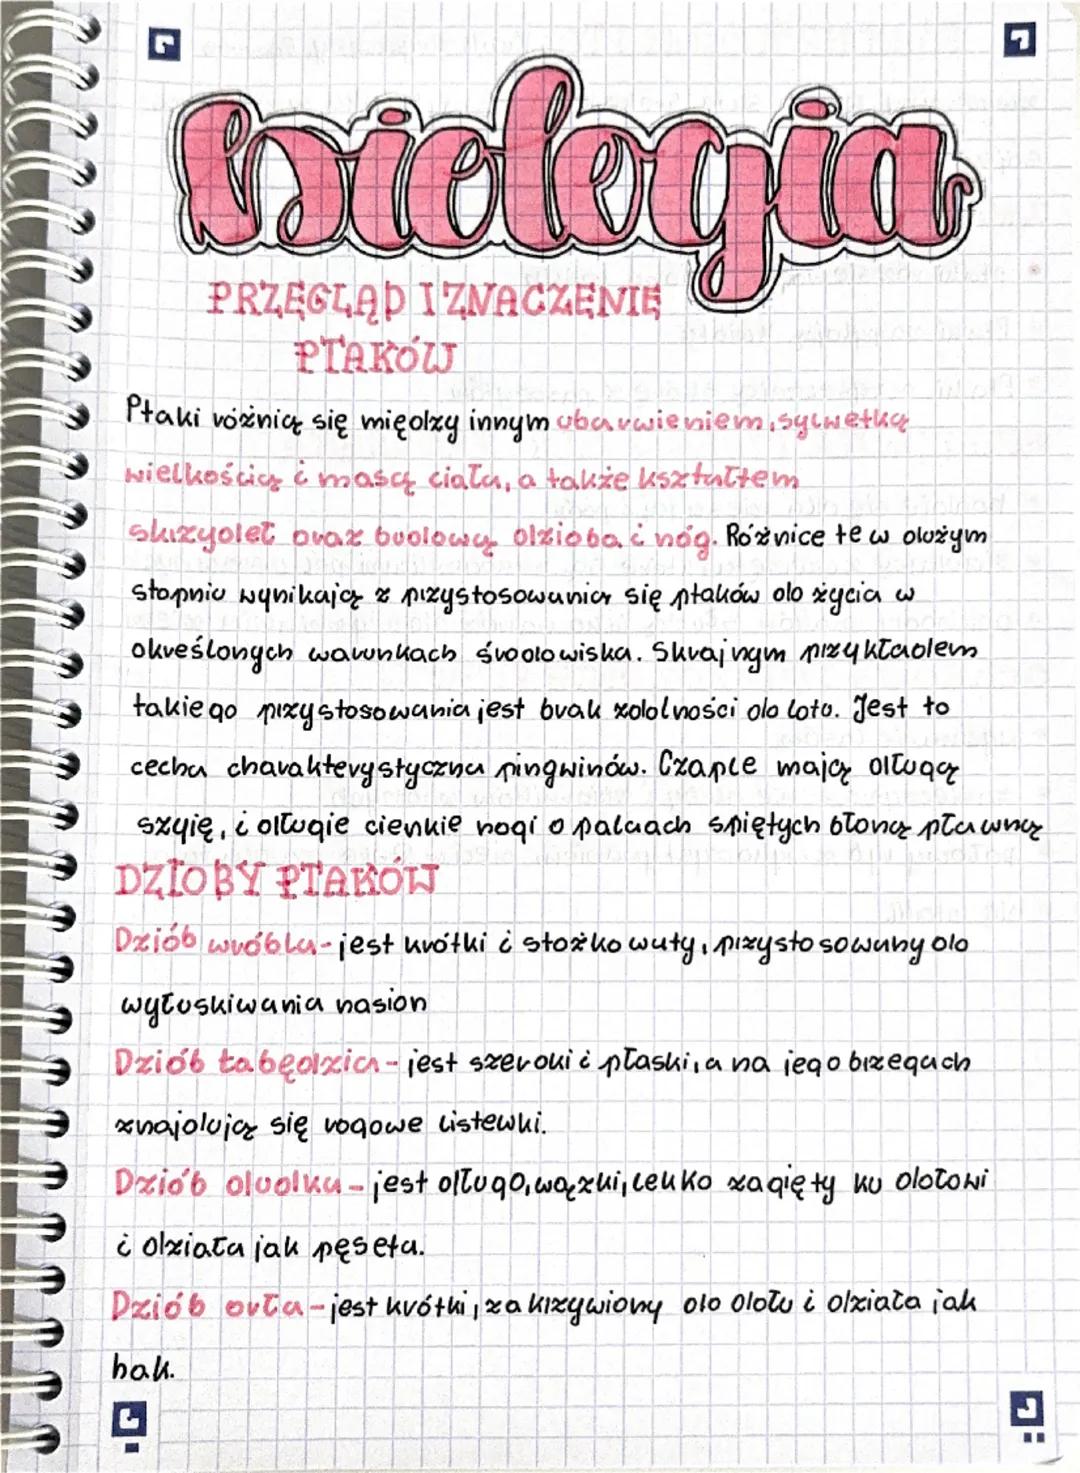 biologia
PRZEGLĄD I ZNACZENIE
PTAKÓW
Ptaki różnią się między innym ubarwieniem, sylwetką
wielkością i masą ciała, a także kształtem
skrzydeł oraz budową dzioba i nóg. Różnice te w dużym
stopniu wynikają z przystosowania się ptaków do życia w
określonych warunkach środowiska. Skrajnym przykładem
takiego przystosowania jest brak zdolności do lotu. Jest to
cecha charakterystyczna pingwinów. Czaple mają długą
szyię, i długie cienkie nogi o palcach spiętych błoną pławną
DZIOBY PTAKÓW
Dziób wróbla - jest krótki i stożkowaty, przystosowany do
wyłuskiwania nasion
Dziób łabędzia - jest szeroki i płaski, a na jego brzegach
znajdują się rogowe listewki.
Dziób dudka - jest długo, wązki, lekko zagięty ku dołowi
i działa jak pęseta.
Dziób orła - jest krótki, zakrzywiony do dołu i działa jak
hak.